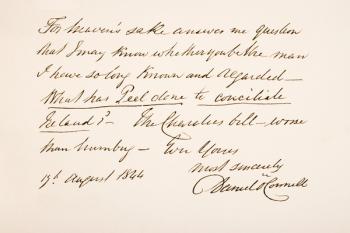 For heaven's sake answer me question
that I may know whether you be the man
I have so long known and regarded—
What has Peel done to conciliate
Ireland?— The Charities bill—worse
than humbug— Ever Yours
most sincerely
17th August 1844 Daniel O'Connell